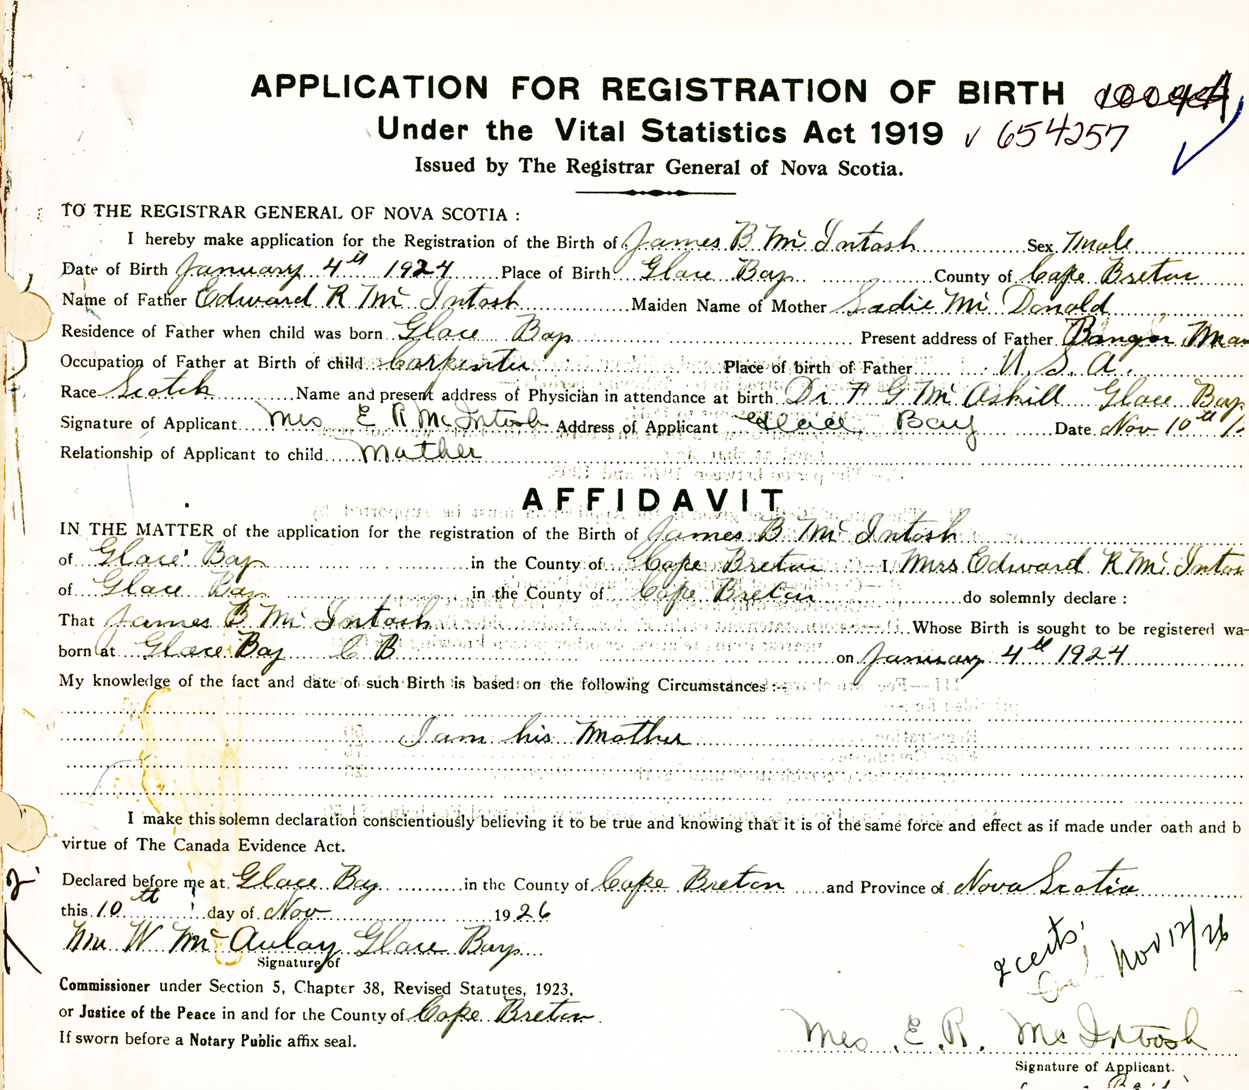 APPLICATION FOR REGISTRATION OF BIRTH
Under the Vital Statistics Act 1919 v 654257
Issued by The Registrar General of Nova Scotia.
TO THE REGISTRAR GENERAL OF NOVA SCOTIA :
I hereby make application for the Registration of the Birth of James B McIntosh Sex Male
Date of Birth January 4th 1924 Place of Birth Glace Bay County of Cape Breton
Name of Father Edward R McIntosh Maiden Name of Mother Sadie McDonald
Residence of Father when child was born Glace Bay Present address of Father Bangor
Occupation of Father at Birth of child Carpenter Place of birth of Father U.S.A.
Race Scotch Name and present address of Physician in attendance at birth Dr F G McAskill Glace Bay
Signature of Applicant Mrs E R McIntosh Address of Applicant Glace Bay Date Nov 10th
Relationship of Applicant to child Mother
AFFIDAVIT
IN THE MATTER of the application for the registration of the Birth of James B McIntosh
of Glace Bay in the County of Cape Breton I Mrs Edward R McIntos
of Glace Bay in the County of Cape Breton do solemnly declare :
That James B McIntosh Whose Birth is sought to be registered wa
born at Glace Bay C B on January 4th 1924
My knowledge of the fact and date of such Birth is based on the following Circumstances :-
I am his Mother
I make this solemn declaration conscientiously believing it to be true and knowing that it is of the same force and effect as if made under oath and b
virtue of The Canada Evidence Act.
Declared before me at Glace Bay in the County of Cape Breton and Province of Nova Scotia
this 10th day of Nov 1926
Wm W McAulay Glace Bay
Signature of
Commissioner under Section 5, Chapter 38, Revised Statutes, 1923,
or Justice of the Peace in and for the County of Cape Breton.
If sworn before a Notary Public affix seal.
2 certs
Nov 12/26
Mrs. E. R. McIntosh
Signature of Applicant.